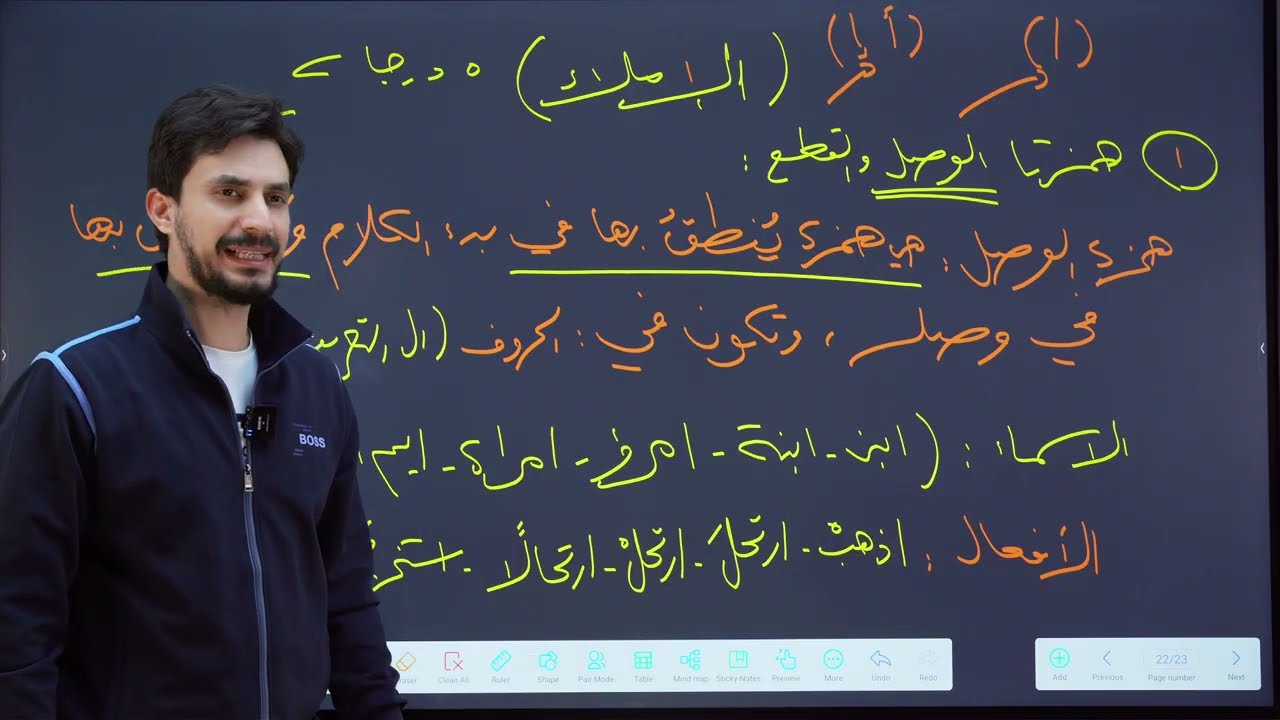 (ا) (أ) (الإملاء) ٥ درجات
١ همزتا الوصل والقطع :
همزة الوصل : هي همزة يُنطقُ بها في بدء الكلام بها
في وصله ، وتكون في : الحروف (ال
الاسماء : (ابن - ابنة - امرؤ - امرأة - ايم
الأفعال : اذهبْ - ارتحلَ - ارتحلْ - ارتحالًا -
BOSS
Clean All Ruler Shape Pair Mode Table Mind map Sticky-Notes Preview More Undo Redo
Add Previous 22/23 Page number Next